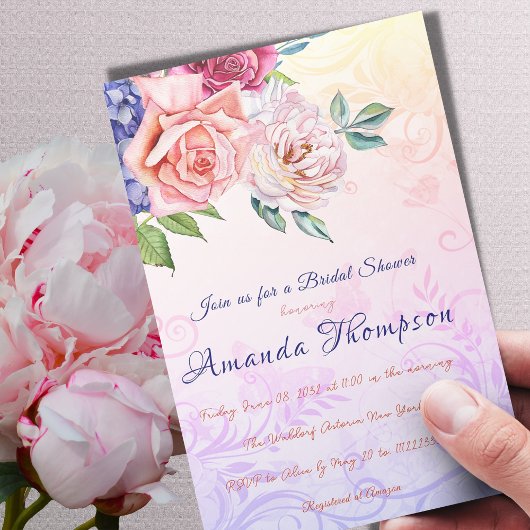 Join us for a Bridal Shower
honoring
Amanda Thompson
Friday June 08, 2032 at 11:00 in the morning
The Waldorf Astoria New York
RSVP to Alice by May 20 to 11122233
Registered at Amazon